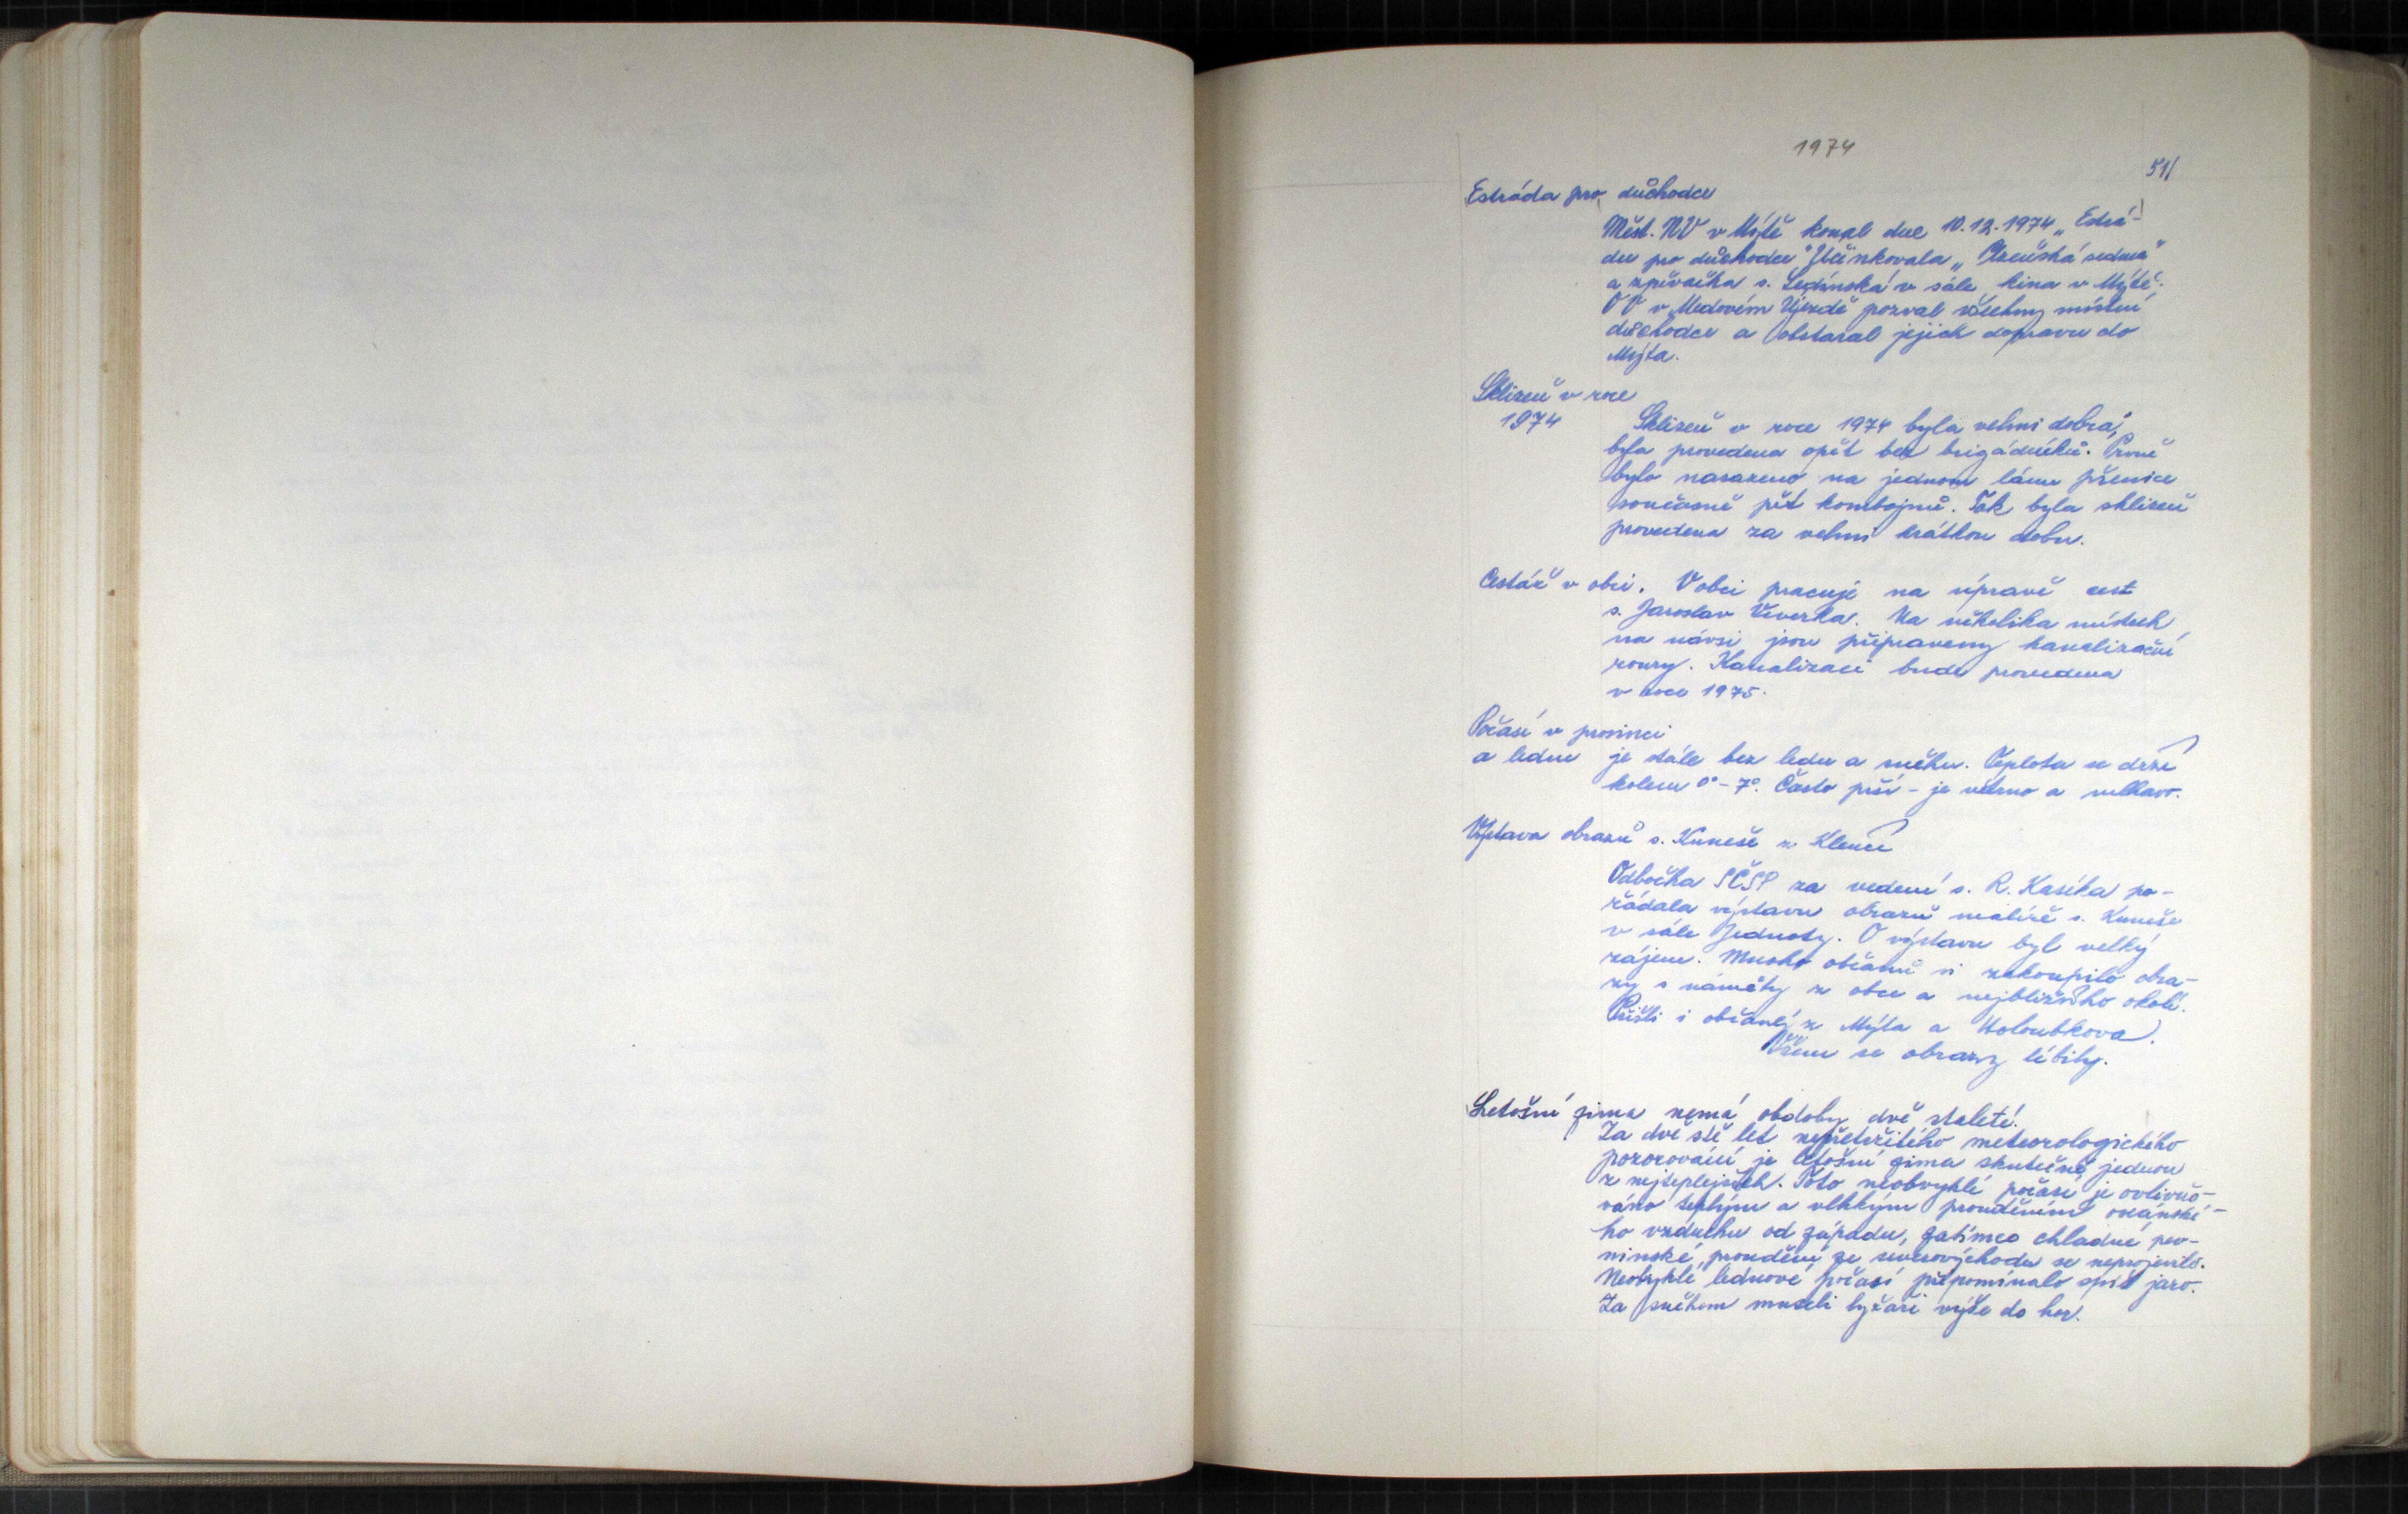 1974
51/
Estráda pro důchodce
Měst. NV v Mýtě konal dne 10.12.1974 „Estrá-
du pro důchodce". Účinkovala „Plzeňská sedma"
a zpěvačka s. Ledinská v sále kina v Mýtě.
OV v Medovém Újezdě pozval všechny místní
důchodce a obstaral jejich dopravu do
Mýta.
Sklizeň v roce
1974 Sklizeň v roce 1974 byla velmi dobrá,
byla provedena opět bez brigádníků. Prvně
bylo nasazeno na jednom lánu pšenice
současně pět kombajnů. Tak byla sklizeň
provedena za velmi krátkou dobu.
Cestář v obci. V obci pracuje na úpravě cest
s. Jaroslav Veverka. Na několika místech
na návsi jsou připraveny kanalizační
roury. Kanalizaci bude provedena
v roce 1975.
Počasí v prosinci
a lednu je stále bez ledu a sněhu. Teplota se drží
kolem 0°-7°. Často prší - je větrno a vlhkavo.
Výstava obrazů s. Kuneše z Klenčí
Odbočka SČSP za vedení s. R. Kasíka po-
řádala výstavu obrazů malíře s. Kuneše
v sále Jednoty. O výstavu byl velký
zájem. Mnoho občanů si zakoupilo obra-
zy s náměty z obce a nejbližšího okolí.
Přišli i občané z Mýta a Holoubkova.
Všem se obrazy líbily.
Letošní zima nemá obdoby dvě staletí.
Za dvě stě let nepřetržitého meteorologického
pozorování je letošní zima skutečně jednou
z nejteplejších. Toto neobvyklé počasí je ovlivňo-
váno teplým a vlhkým prouděním oceánské-
ho vzduchu od západu, zatímco chladné pev-
ninské proudění ze severovýchodu se neprojevilo.
Neobyklé lednové počasí připomínalo spíš jaro.
Za sněhem museli lyžaři výše do hor.